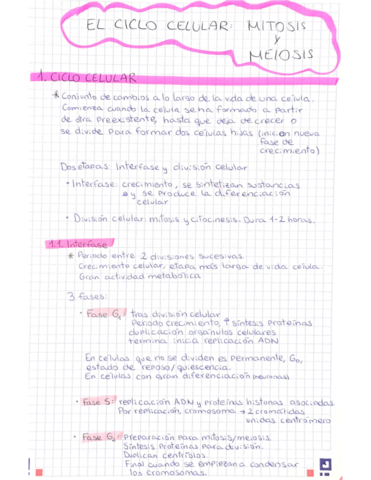 EL CICLO CELULAR: MITOSIS
y
MEIOSIS
1. CICLO CELULAR
* Conjunto de cambios a lo largo de la vida de una célula.
Comienza cuando la célula se ha formado a partir
de otra preexistente, hasta que deja de crecer o
se divide para formar dos células hijas (inician nueva
fase de
crecimiento)
Dos etapas: Interfase y división celular
· Interfase: crecimiento, se sintetizan sustancias
y se produce la diferenciación
celular
· División celular: mitosis y citocinesis. Dura 1-2 horas.
1.1. Interfase
* Periodo entre 2 divisiones sucesivas
Crecimiento celular, etapa más larga de vida celular.
Gran actividad metabólica
3 fases:
· Fase G1: tras división celular
Periodo crecimiento, ↑ síntesis proteínas
duplicación orgánulos celulares
termina inicia replicación ADN
En células que no se dividen es permanente, G0,
estado de reposo/quiescencia.
En células con gran diferenciación (neuronas)
· Fase S: replicación ADN y proteínas histonas asociadas
Por replicación, cromosoma → 2 cromátidas
unidas centrómero
· Fase G2: Preparación para mitosis/meiosis
Síntesis proteínas para división.
Duplican centriolos
Final cuando se empiezan a condensar
los cromosomas.